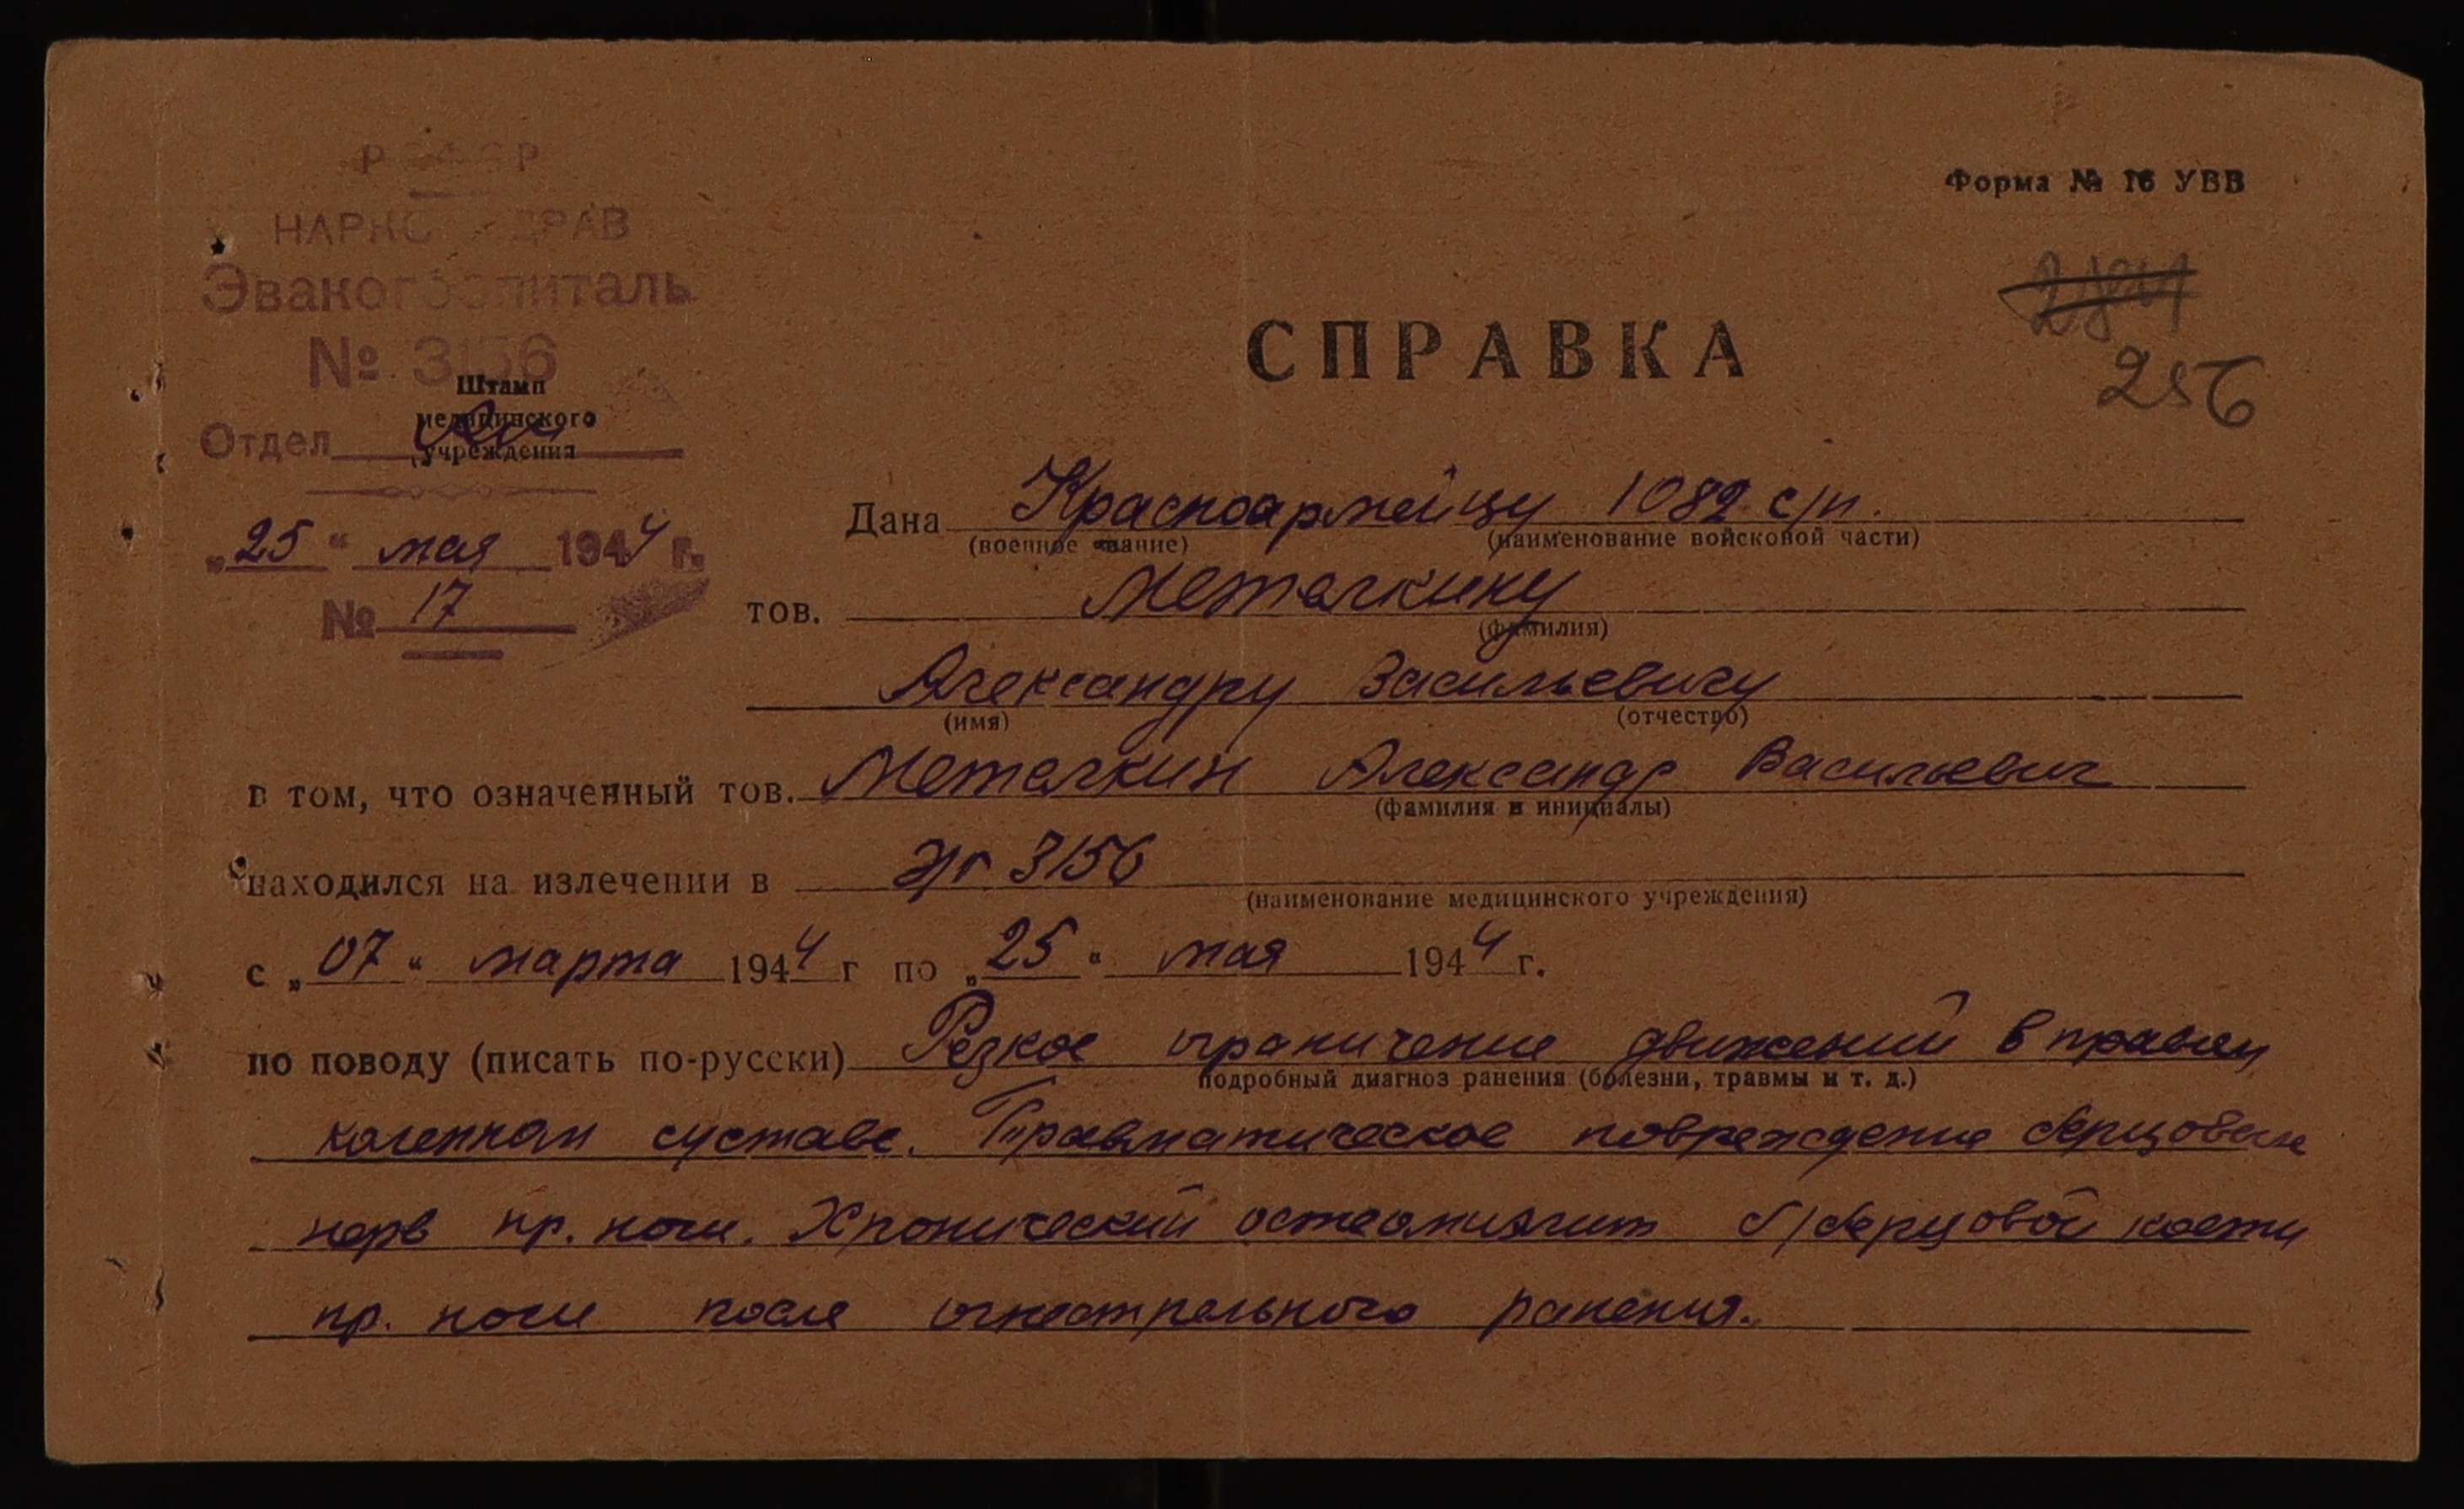 РСФСР
НАРКОМЗДРАВ
Эвакогоспиталь
№ 3156
Штамп
медицинского
учреждения
Отдел
„25“ мая 1944 г.
№ 17
Форма № 16 УВВ
256
СПРАВКА
Дана Красноармейцу 1082 с/п.
(военное звание) (наименование войсковой части)
тов. Метелкину
(фамилия)
Александру Васильевичу
(имя) (отчество)
в том, что означенный тов. Метелкин Александр Васильевич
(фамилия и инициалы)
находился на излечении в э/г 3156
(наименование медицинского учреждения)
с „07“ марта 1944 г по „25“ мая 1944 г.
по поводу (писать по-русски) Резкое ограничение движений в правом
подробный диагноз ранения (болезни, травмы и т. д.)
коленном суставе. Травматическое повреждение берцовый
нерв пр. ноги. Хронический остеомиэлит б/берцовой кости
пр. ноги после огнестрельного ранения.